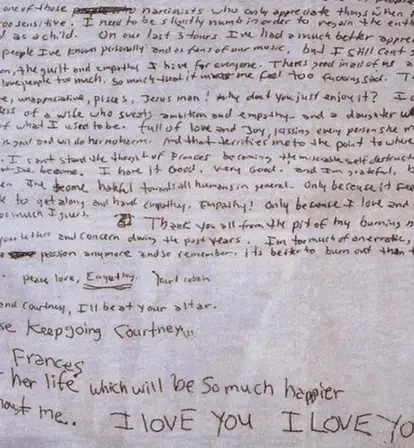 one of those narcissists who only appreciate things when
too sensitive. I need to be slightly numb in order to regain the en
d as a child. On our last 3 tours I've had a much better apprec
people I've known personally and as fans of our music, but I still can't
on, the guilt and empathy I have for everyone. There's good in all of us a
love people too much. So much that it makes me feel too fucking sad. T
e, unappreciative, pisces, Jesus man! Why don't you just enjoy it? I
ess of a wife who sweats ambition and empathy. and a daughter w
of what I used to be. full of love and joy, kissing every person she m
is good and will do her no harm. And that terrifies me to the point to where
I can't stand the thought of Frances becoming the miserable self destruct
I've become. I have it Good. very Good. and I'm grateful, b
en I've become hateful towards all humans in general. Only because it see
le to get along and have empathy. Empathy! Only because I love and
too much I guess. Thank you all from the pit of my burning n
your letters and concern during the past years. I'm too much of an erratic,
passion anymore and so remember, its better to burn out than t
peace love, Empathy. kurt cobain
and Courtney, I'll be at your altar.
se Keep going Courtney,
Frances
her life which will be so much happier
hout me.. I LOVE YOU I LOVE YO